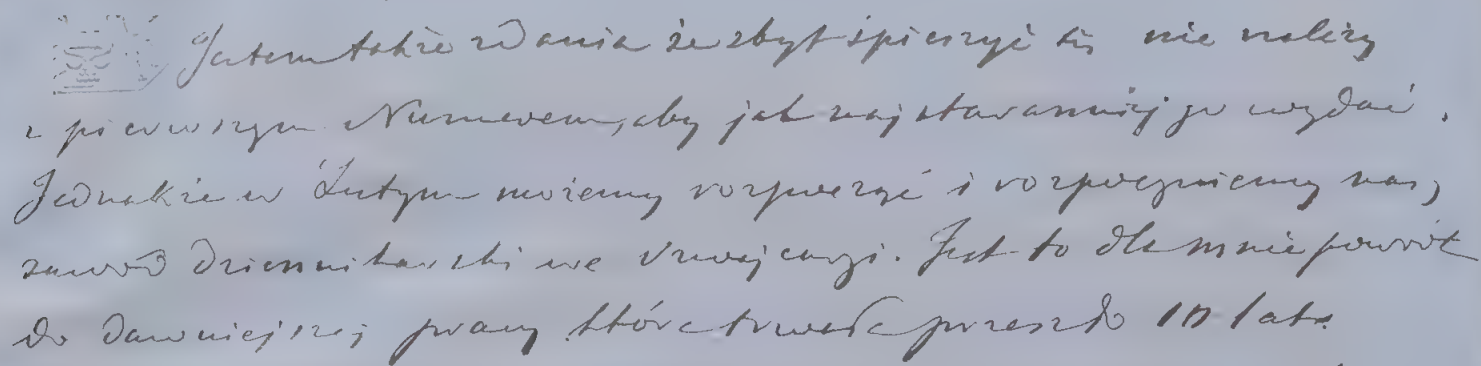 Jestem także zdania że zbyt śpieszyć się nie należy
z pierwszym Numerem, aby jak najstaranniej go wydać.
Jednakże w Lutym możemy rozpocząć i rozpoczniemy nasz
zawód dziennikarski we Szwajcaryi. Jest to dla mnie powrót
do dawniejszej pracy która trwała przeszło 10 lat.